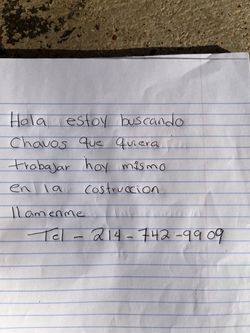 Hola estoy buscando
Chavos que quiera
trabajar hoy mismo
en la costruccion
llamenme
Tel - 214-742-9909